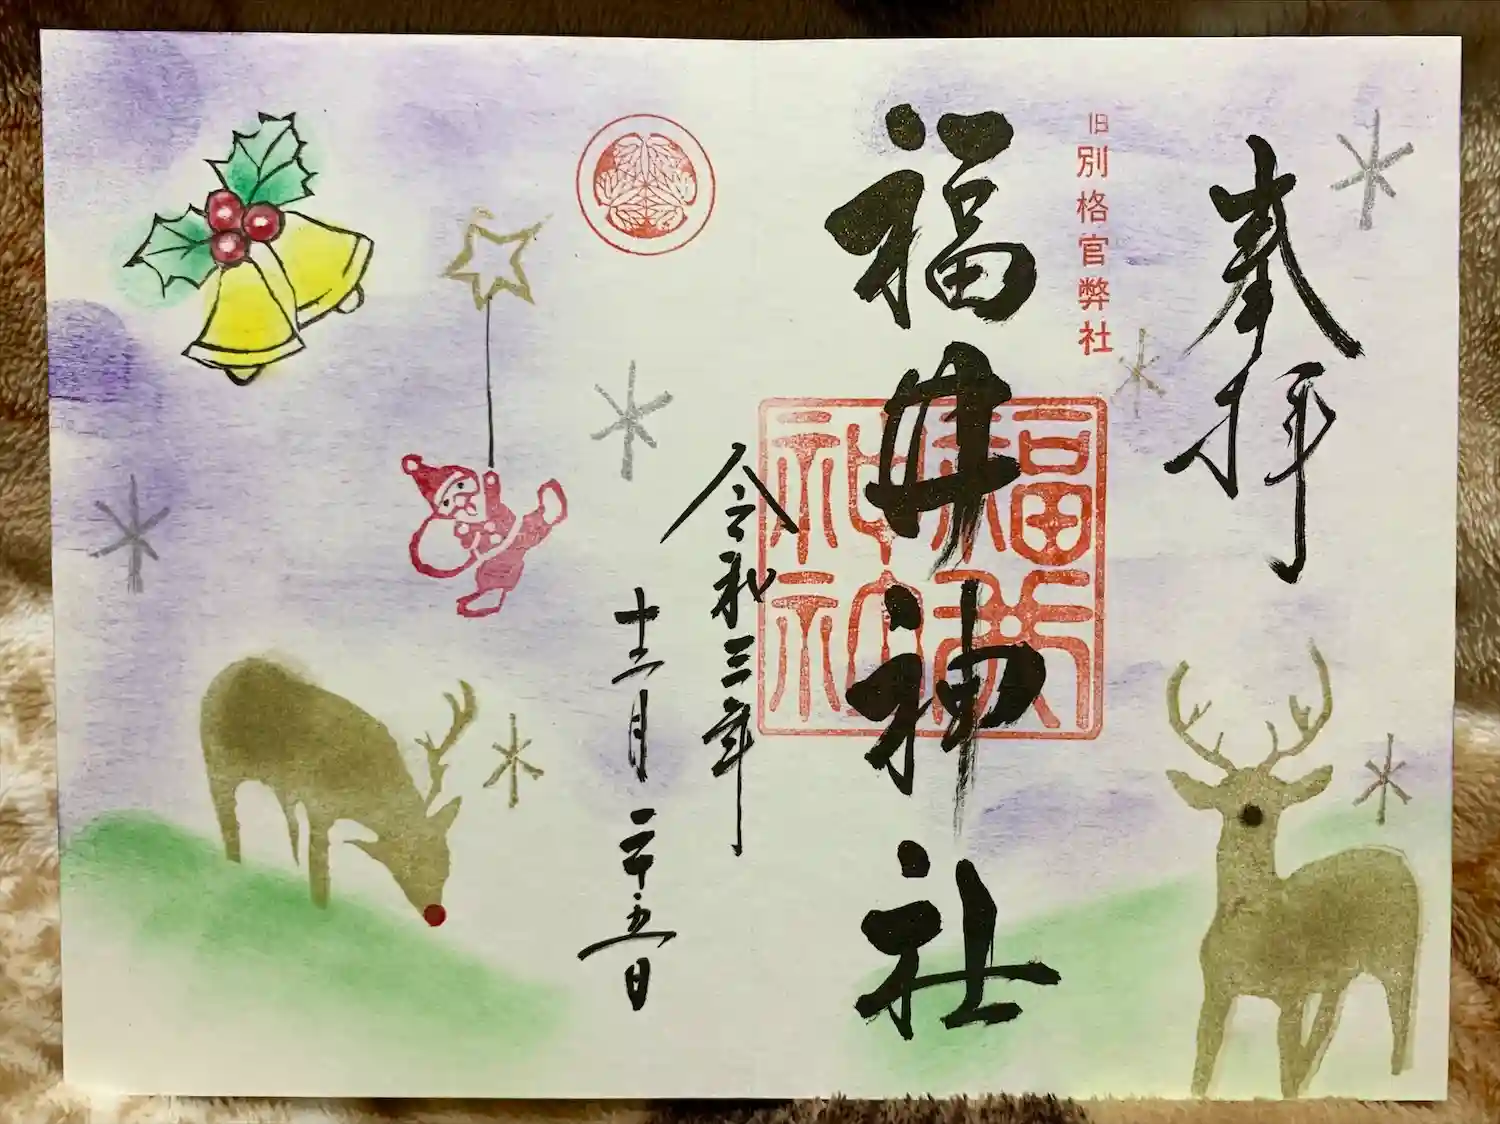 奉拝
旧別格官弊社
福井神社
令和三年
十二月二十五日